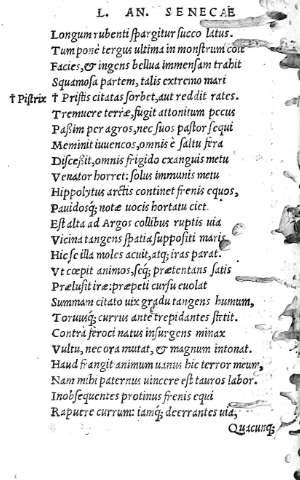 L. AN. SENECAE
Longum rubenti spargitur succo latus.
Tum ponè tergus ultima in monstrum coit
Facies, & ingens bellua immensam trahit
Squamosa partem, talis extremo mari
† Pistrix † Pristis citatas sorbet, aut reddit rates.
Tremuere terræ, fugit attonitum pecus
Paßim per agros, nec suos pastor sequi
Meminit iuuencos, omnis è saltu fera
Disceßit, omnis frigido exanguis metu
Venator horret: solus immunis metu
Hippolytus arctis continet frenis equos,
Pauidosq; notæ uocis hortatu ciet.
Est alta ad Argos collibus ruptis uia
Vicina tangens spatia suppositi maris
Hic se illa moles acuit, atq; iras parat.
Vt cœpit animos, seq; prætentans satis
Prælusit iræ: præpeti cursu euolat
Summam citato uix gradu tangens humum,
Toruusq; currus ante trepidantes stetit.
Contrà feroci natus insurgens minax
Vultu, nec ora mutat, & magnum intonat.
Haud frangit animum uanus hic terror meum,
Nam mihi paternus uincere est tauros labor.
Inobsequentes protinus freni equi
Rapuere currum: iamq; deerrantes uia,
Quacunq;